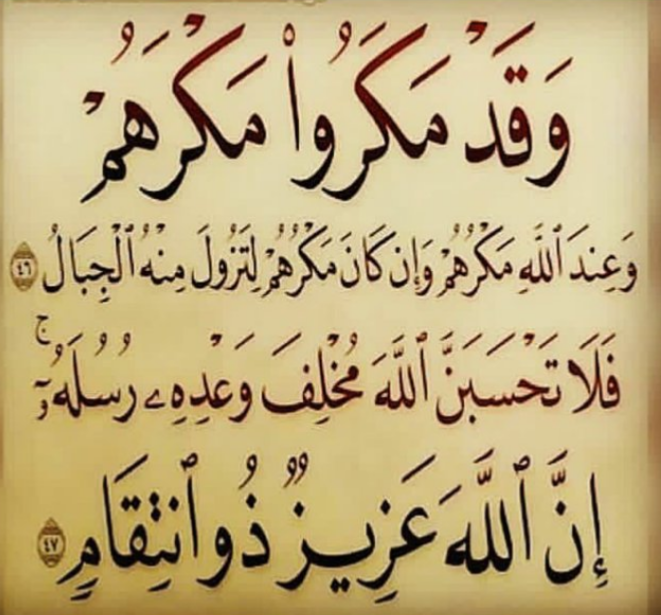 وَقَدْ مَكَرُوا۟ مَكْرَهُمْ
وَعِندَ ٱللَّهِ مَكْرُهُمْ وَإِن كَانَ مَكْرُهُمْ لِتَزُولَ مِنْهُ ٱلْجِبَالُ ٤٦
فَلَا تَحْسَبَنَّ ٱللَّهَ مُخْلِفَ وَعْدِهِۦ رُسُلَهُۥٓ ۚ
إِنَّ ٱللَّهَ عَزِيزٌ ذُو ٱنتِقَامٍ ٤٧